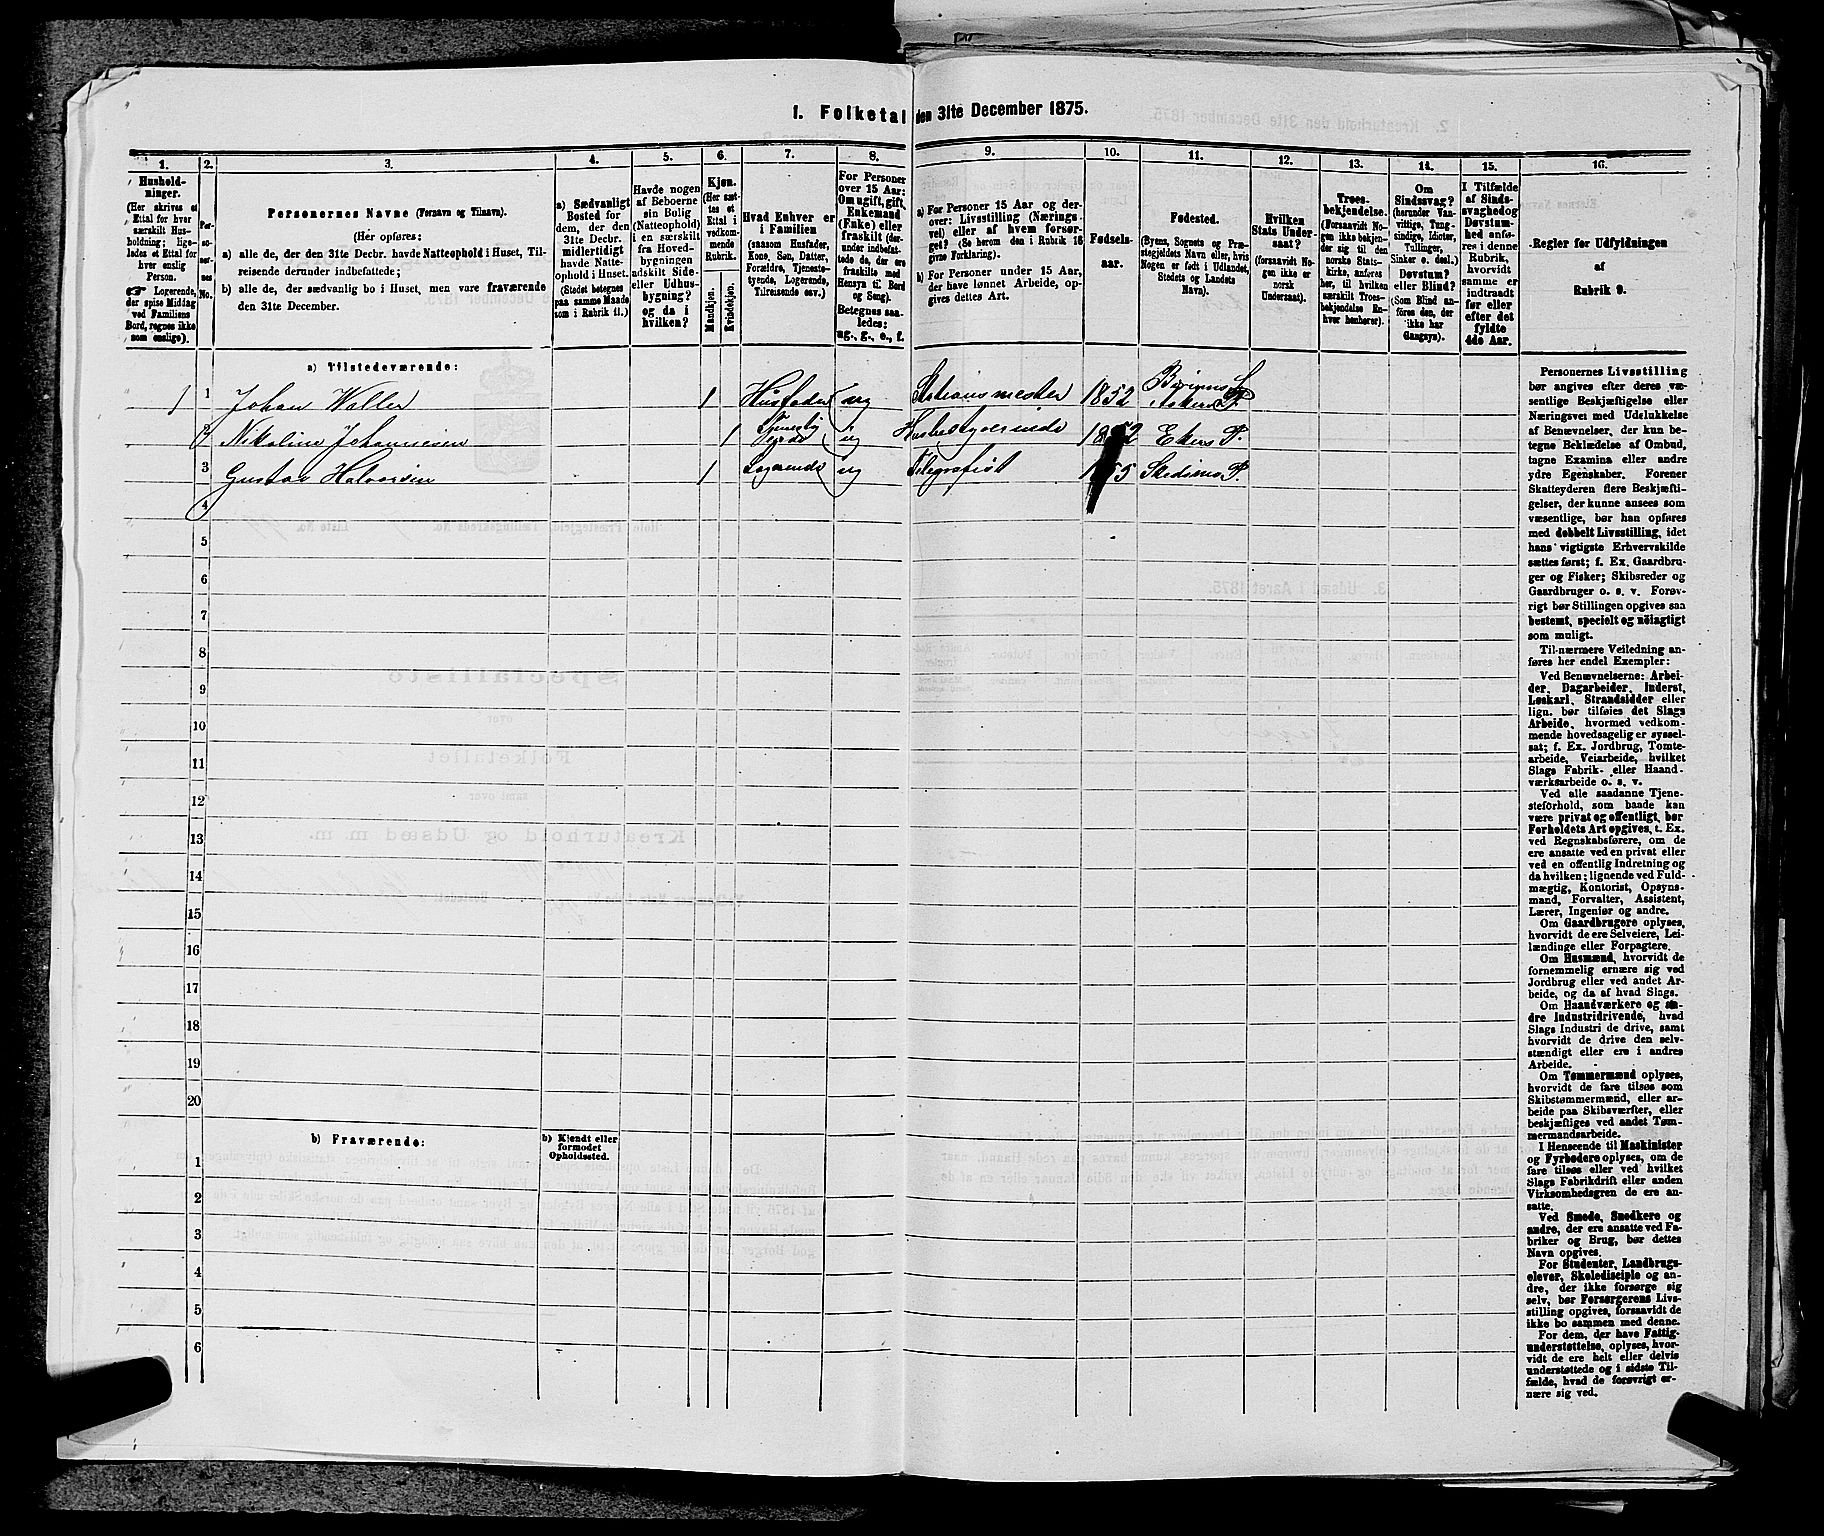 1. Folketal den 31te December 1875.
1. 2. 3. 4. 5. 6. 7. 8. 9. 10. 11. 12. 13. 14. 15. 16.
Hushold-
ninger.
(Her skrives et
Ettal for hver
særskilt Hus-
holdning; lige-
ledes et Ettal for
hver enslig
Person.
Logerende,
der spise Middag
ved Familiens
Bord, regnes ikke
som enslige).
Per-
so-
ner-
nes
No.
Personernes Navne (Fornavn og Tilnavn).
(Her opføres:
a) alle de, der den 31te Decbr. havde Natteophold i Huset, Til-
reisende derunder indbefattede;
b) alle de, der sædvanlig bo i Huset, men vare fraværende
den 31te December.
a) Sædvanligt
Bosted for
dem, der den
31te Decbr.
midlertidigt
havde Natte-
ophold i Huset.
(Stedet betegnes
paa samme Maade
som i Rubrik 11.)
Havde nogen
af Beboerne
sin Bolig
(Natteophold)
i en særskilt
fra Hoved-
bygningen
adskilt Side-
eller Udhus-
bygning?
og da i
hvilken?
Kjøn.
(Her sæt-
tes et
Ettal i
vedkom-
mende
Rubrik.
Mandkjøn.
Kvindekjøn.
Hvad Enhver er
i Familien
(saasom Husfader,
Kone, Søn, Datter,
Forældre, Tjeneste-
tyende, Logerende,
Tilreisende osv.)
For Personer
over 15 Aar:
Om ugift, gift,
Enkemand
(Enke) eller
fraskilt (der-
under indbefat-
tede de, der ere
fraskilte med
Hensyn til Bord
og Seng).
Betegnes saa-
ledes:
ug., g., e., f.
a) For Personer 15 Aar og der-
over: Livsstilling (Nærings-
vei) eller af hvem forsør-
get? (Se herom den i Rubrik 16
givne Forklaring).
b) For Personer under 15 Aar,
der have lønnet Arbeide, op-
gives dettes Art.
Fødsels-
aar.
Fødested.
(Byens, Sognets og Præ-
stegjeldets Navn eller, hvis
Nogen er født i Udlandet,
Stedets og Landets
Navn).
Hvilken
Stats Under-
saat?
(forsaavidt No-
gen ikke er
norsk
Undersaat).
Troes-
bekjendelse.
(Forsaavidt No-
gen ikke bekjen-
der sig til den
norske Stats-
kirke, anføres
her, til hvilken
særskilt Troes-
bekjendelse En-
hver henhører).
Om
Sindssvag?
(herunder Van-
vittige, Tung-
sindige, Idioter,
Tullinger,
Sinker o. desl.)
Døvstum?
eller Blind?
(Som Blind an-
føres den, der
ikke har
Gangsyn).
I Tilfælde
af Sinds-
svaghed og
Døvstum-
hed anfø-
res i denne
Rubrik,
hvorvidt
samme er
indtraadt
før eller
efter det
fyldte
4de Aar.
Regler for Udfyldningen
af
Rubrik 9.
a) Tilstedeværende:
1 1 Johan Weller 1 Husfader ug Stationsmester 1852 Bærums S. Askers P.
2 Nikoline Johannesen 1 ug Husbestyrerinde 1852 Ekers P.
3 Gustav Halvorsen 1 Logerende ug Telegrafist 1855 Skedsmo P.
4
5
6
7
8
9
10
11
12
13
14
15
16
17
18
19
20
b) Fraværende:
b) Kjendt eller
formodet
Opholdssted.
1
2
3
4
5
6
Personernes Livsstilling
bør angives efter deres væ-
sentlige Beskjæftigelse eller
Næringsvei med Udelukkelse
af Benævnelser, der kun be-
tegne Beklædelse af Ombud,
tagne Examina eller andre
ydre Egenskaber. Forener
Skatteyderen flere Beskjæfti-
gelser, der kunne ansees som
væsentlige, bør han opføres
med dobbelt Livsstilling, idet
hans vigtigste Erhvervskilde
sættes først; f. Ex. Gaardbru-
ger og Fisker; Skibsreder og
Gaardbruger o. s. v. Forøv-
rigt bør Stillingen opgives saa
bestemt, specielt og nøiagtigt
som muligt.
Til nærmere Veiledning an-
føres her endel Exempler:
Ved Benævnelserne: Arbei-
der, Dagarbeider, Inderst,
Løskarl, Strandsidder eller
lign. bør tilføies det Slags
Arbeide, hvormed vedkom-
mende hovedsagelig er syssel-
sat; f. Ex. Jordbrug, Tomte-
arbeide, Veiarbeide, hvilket
Slags Fabrik- eller Haand-
værksarbeide o. s. v.
Ved alle saadanne Tjene-
steforhold, som baade kan
være privat og offentligt, bør
Forholdets Art opgives, t. Ex.
ved Regnskabsførere, om de
ere ansatte ved en privat eller
ved en offentlig Indretning og
da hvilken; lignende ved Fuld-
mægtig, Kontorist, Opsyns-
mand, Forvalter, Assistent,
Lærer, Ingeniør og andre.
Om Gaardbrugere oplyses,
hvorvidt de ere Selveiere, Lei-
lændinge eller Forpagtere.
Om Husmænd, hvorvidt de
fornemmelig ernære sig ved
Jordbrug eller ved andet Ar-
beide, og da af hvad Slags.
Om Haandværkere og an-
dre Industridrivende, hvad
Slags Industri de drive, samt
hvorvidt de drive den selv-
stændigt eller ere i andres
Arbeide.
Om Tømmermænd oplyses,
hvorvidt de fare tilsøs som
Skibstømmermænd, eller ar-
beide paa Skibsværfter, eller
beskjæftiges ved andet Tøm-
mermandsarbeide.
I Henseende til Maskinister
og Fyrbødere oplyses, om de
fare tilsøs eller ved hvilket
Slags Fabrikdrift eller anden
Virksomhedsgren de ere an-
satte.
Ved Smede, Snedkere og
andre, der ere ansatte ved Fa-
briker og Brug, bør dettes
Navn opgives.
For Studenter, Landbrugs-
elever, Skoledisciple og an-
dre, der ikke forsørge sig
selv, bør Forsørgerens Livs-
stilling opgives, forsaavidt de
ikke bo sammen med denne.
For dem, der have Fattig-
understøttelse, oplyses, hvor-
vidt de ere helt eller delvis
understøttede og i sidste Til-
fælde, hvad de forøvrigt er-
nære sig ved.